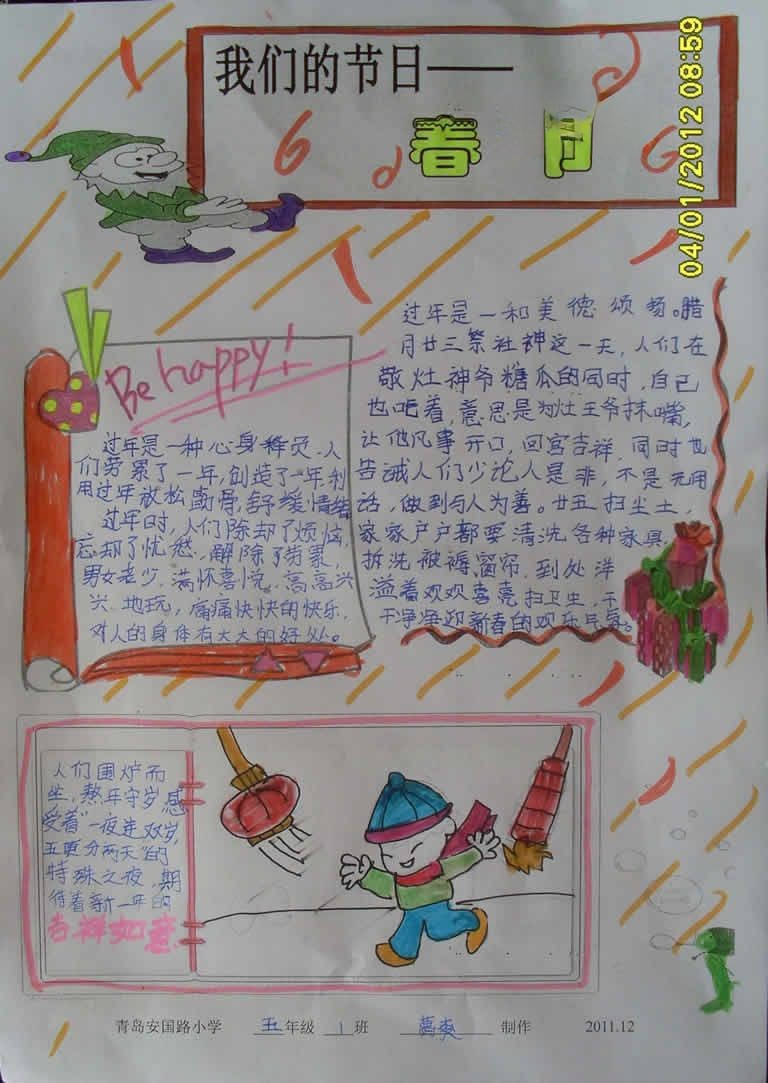 我们的节日——
春节
04/01/2012 08:59
Be happy!
过年是一种心身释灵.人
们劳累了一年,创造了一年,利
用过年放松酮骨,舒缓情绪
过年时,人们除却了烦恼,
忘却了忧愁,解除了劳累,
男女老少,满怀喜悦,高高兴
兴地玩,痛痛快快的快乐,
对人的身体有大大的好处。
过年是一和美德颂扬。腊
月廿三祭社神这一天,人们在
敬灶神爷糖瓜的同时,自己
也吧着,意思是为灶王爷抹嘴,
让他凡事开口,回宫吉祥,同时也
告诫人们少论人是非,不是无用
话,做到与人为善。廿五扫尘土,
家家户户都要清洗各种家具,
拆洗被褥、窗帘,到处洋
溢着欢欢喜喜扫卫生,干
干净净迎新春的欢乐气氛。
人们围炉而
坐,熬年守岁,感
受着"一夜连双岁,
五更分两天"的
特殊之夜,期
待着新一年的
吉祥如意.
青岛安国路小学 五年级 1班 葛爽 制作 2011.12